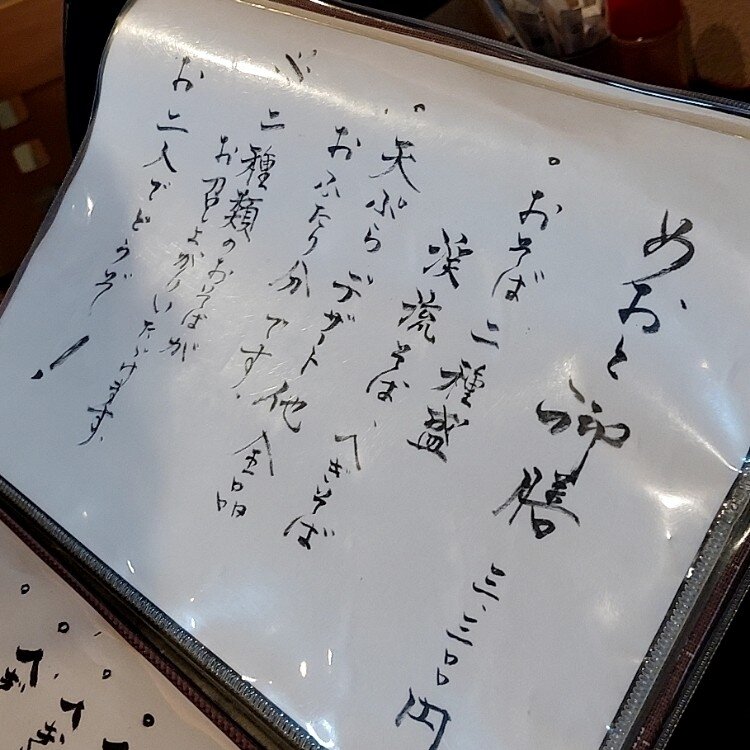 めおと御膳
三、三〇〇円
。おそば二種盛
渓流そば、へぎそば
。天ぷらデザート他全品
おふたり分です。
二種類のおそばが
お召し上がりいただけます。
お二人でどうぞ！